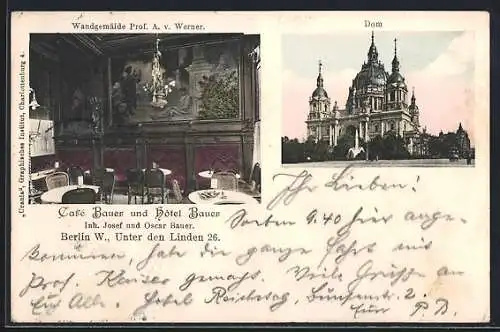 Wandgemälde Prof. A. v. Werner.
Dom
„Urania“, Graphisches Institut, Charlottenburg 4.
Café Bauer und Hôtel Bauer
Inh. Josef und Oscar Bauer.
Berlin W., Unter den Linden 26.
Ihr Lieben!
9.40 hier ange-
kommen, habe die ganze Fahrt mit
Prof. Kaiser gemacht. Viele Grüße an
Euch Alle. Hotel Reichstag, 2.
Euer